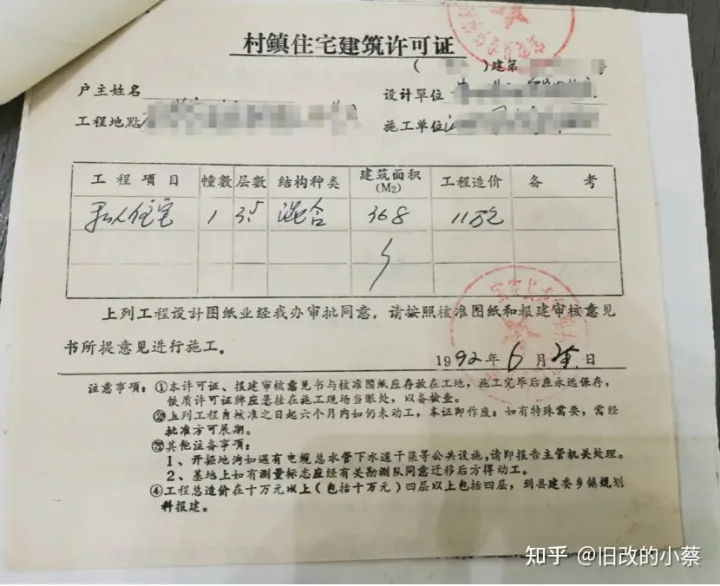 村鎮住宅建筑许可证
( )建第
户主姓名
设计單位
工程地點
施工单位
工程项目 幢數 层數 结构种类 建筑面积(M₂) 工程造价 备考
私人住宅 1 3.5 混合 368 11万
上列工程设计图纸业经我办审批同意，请按照核准图纸和报建审核意见
书所提意见进行施工。
1992年6月 日
注意事項：①本许可证、报建审核意见书与核准图纸应存放在工地，施工完毕后应永远保存，
铁质许可牌应悬挂在施工现场当眼处，以备檢查。
②上列工程自核准之日起六个月内如仍未动工，本证即作废；如有特殊需要，需经
批准方可展期。
③其他注备事项：
1、开挖地沟如遇有电缆总水管下水道干渠等公共设施，请即报告主管机关处理。
2、基地上如有測量标志应经有关勘测队同意迁移后方得动工。
④工程总造价在十万元以上（包括十万元）四层以上包括四层，到县建委乡镇规划
科报建。
知乎 @旧改的小蔡